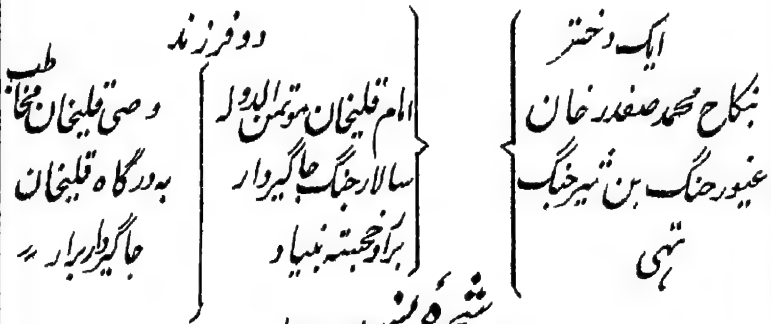 ایک دختر
بنکاح محمد صفدر خان
غیور جنگ بن شیر جنگ
تہی
دو فرزند
امام قلیخان موتمن الدولہ
سالار جنگ جاگیردار
برار خجستہ بنیاد
وصی قلیخان مخاطب
بہ درگاہ قلیخان
جاگیردار برار
شجرۂ